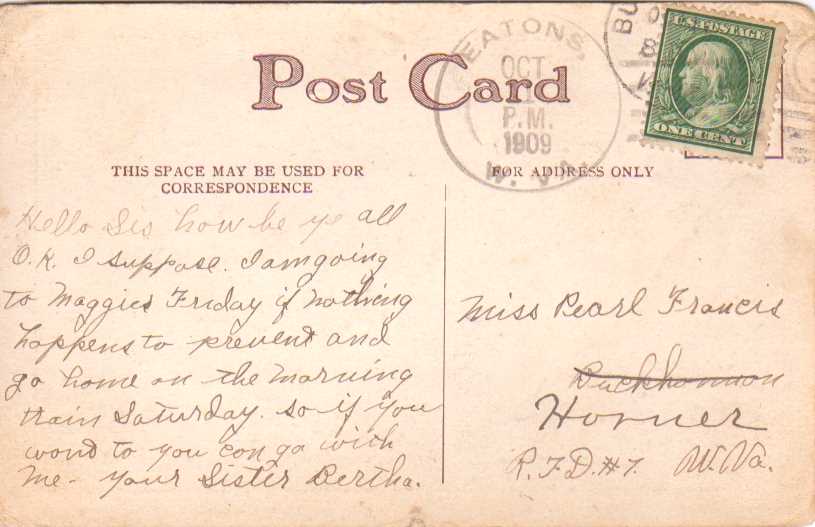 Post Card
EATONS,
OCT
P.M.
1909
W. VA.
BU
8
U.S. POSTAGE
ONE CENT
THIS SPACE MAY BE USED FOR
CORRESPONDENCE
FOR ADDRESS ONLY
Hello Sis how be ye all
O.K. I suppose. I am going
to Maggies Friday if nothing
happens to prevent and
go home on the morning
train Saturday. so if you
wond to you con go with
me - your Sister Bertha.
Miss Pearl Francis
Buckhannon
Horner
R.F.D.#7. W.Va.